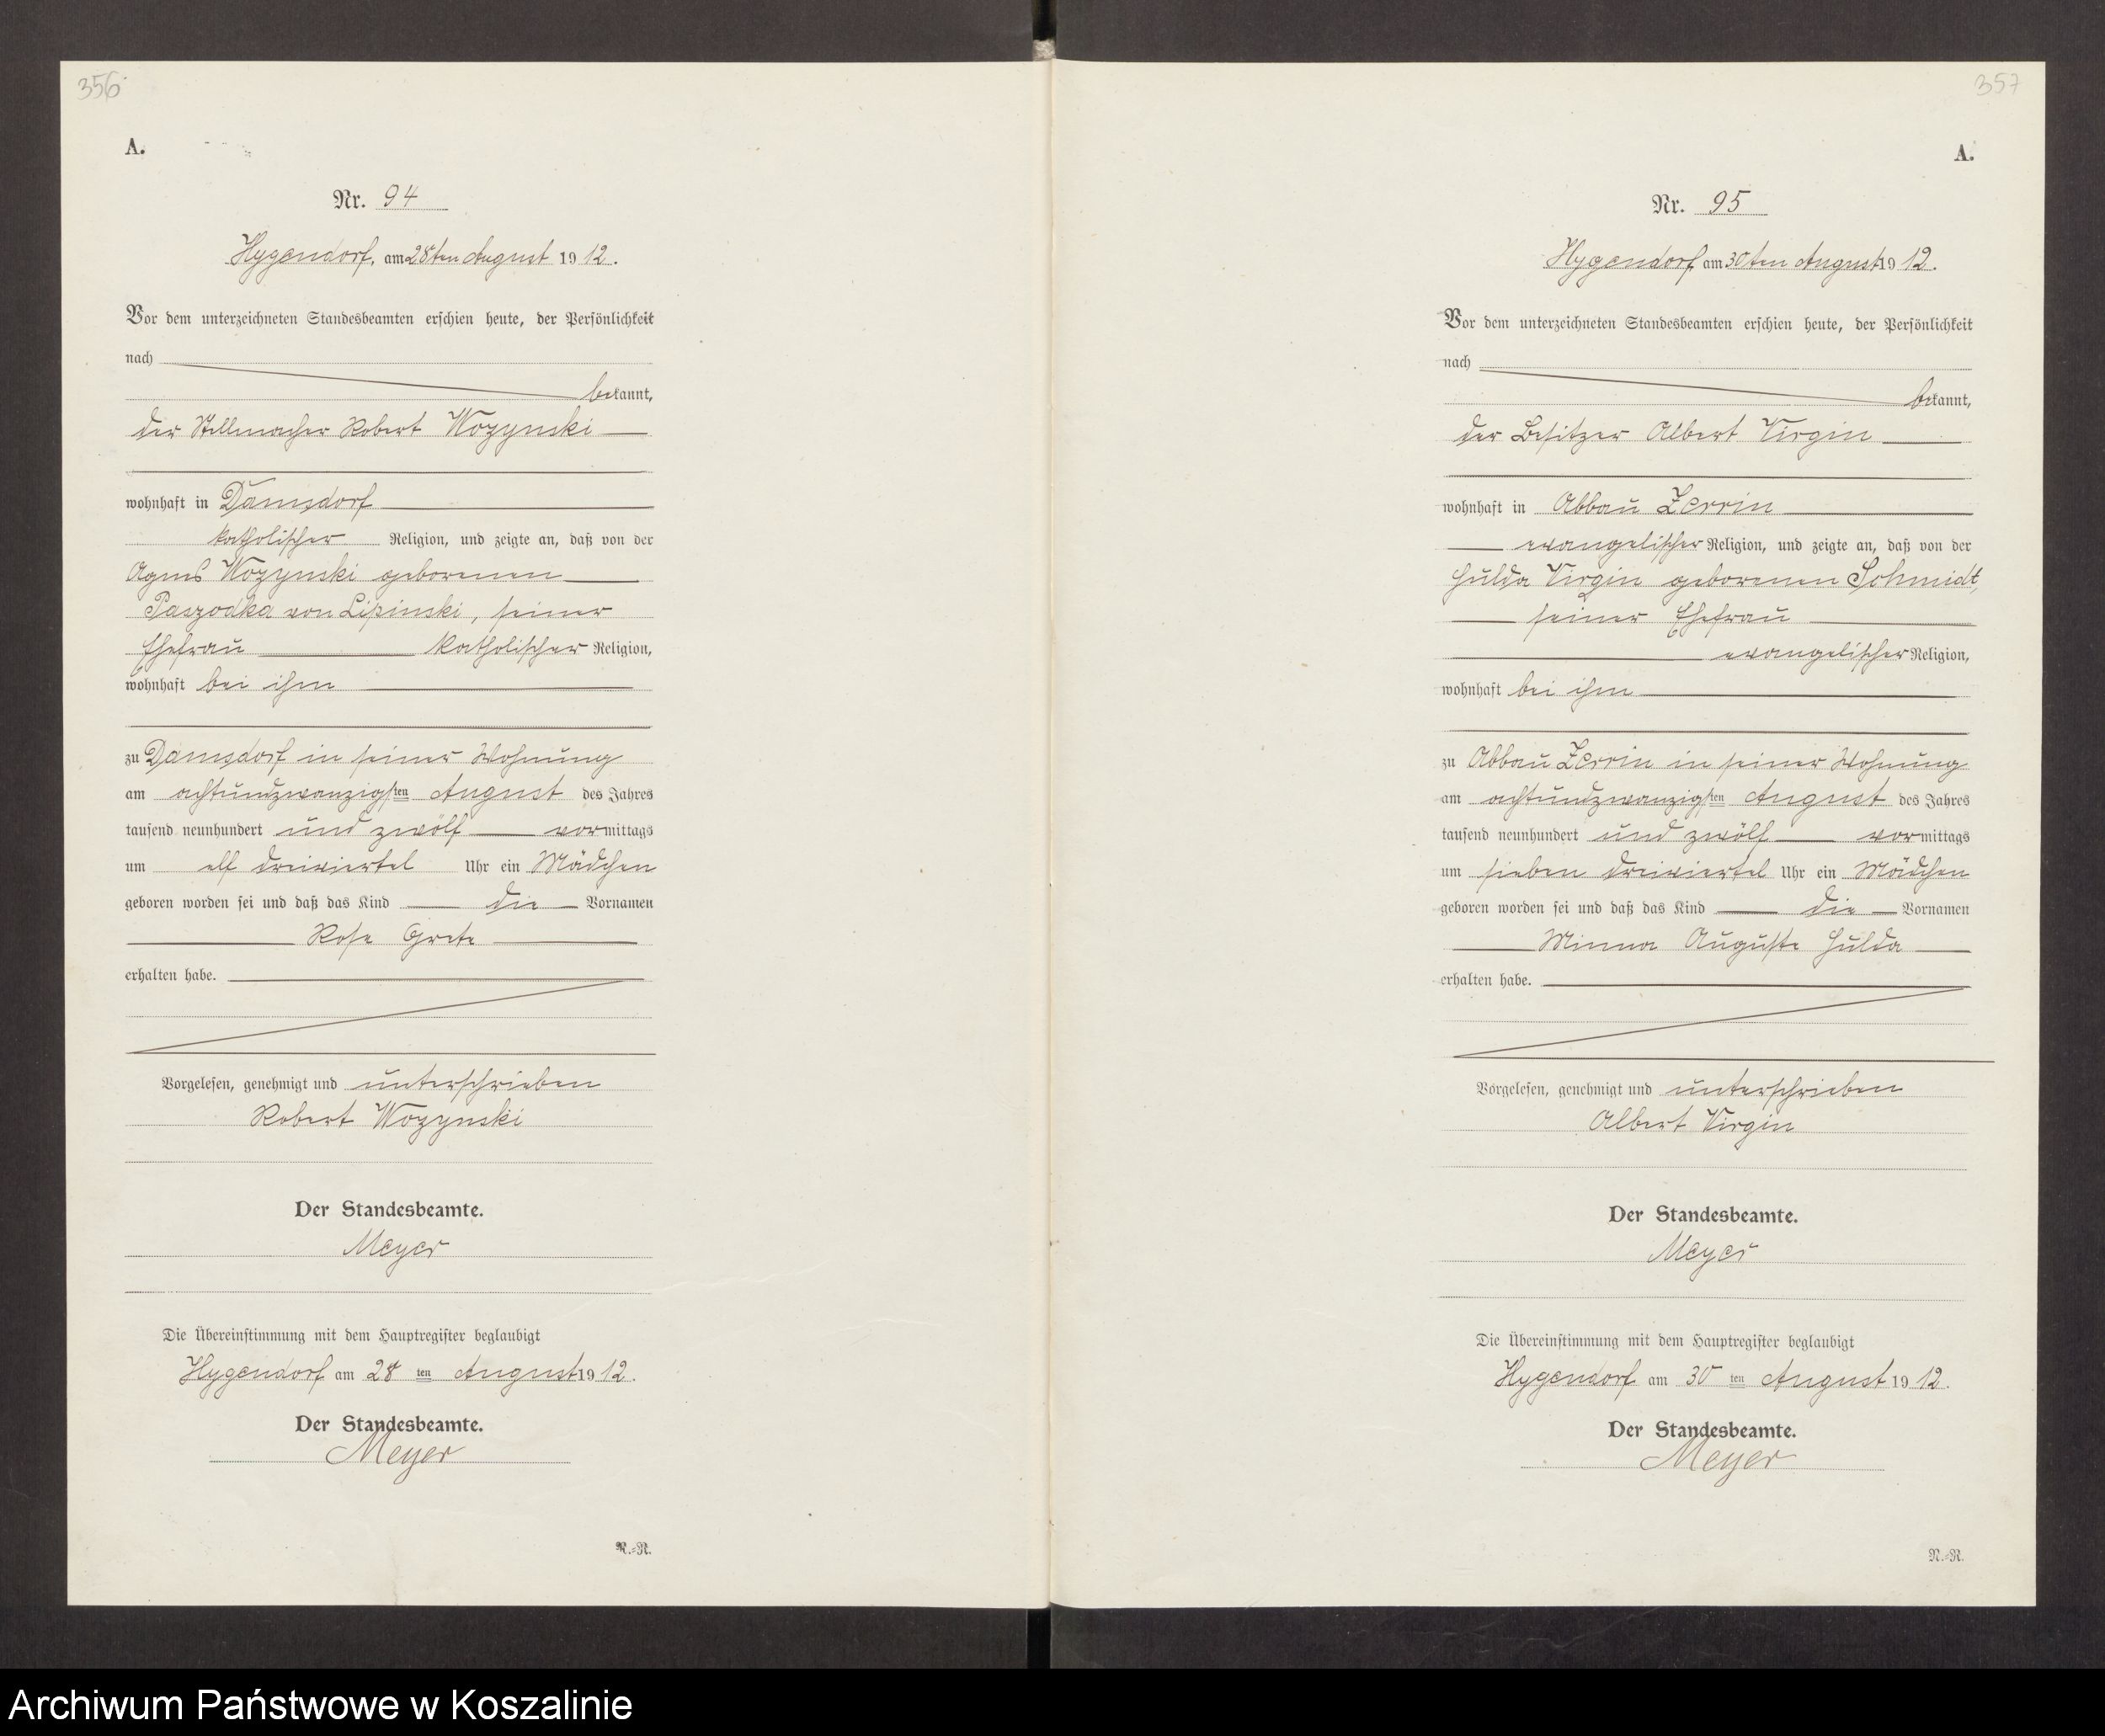 356
A.
Nr. 94
Hygendorf, am 28ten August 1912.
Vor dem unterzeichneten Standesbeamten erschien heute, der Persönlichkeit
nach
bekannt,
der Stellmacher Robert Wozynski
wohnhaft in Damsdorf
katholischer Religion, und zeigte an, daß von der
Agnes Wozynski geborenen
Paszodka von Lipinski, seiner
Ehefrau katholischer Religion,
wohnhaft bei ihm
zu Damsdorf in seiner Wohnung
am achtundzwanzigsten August des Jahres
tausend neunhundert und zwölf vormittags
um elf dreiviertel Uhr ein Mädchen
geboren worden sei und daß das Kind die Vornamen
Rosa Grete
erhalten habe.
Vorgelesen, genehmigt und unterschrieben
Robert Wozynski
Der Standesbeamte.
Meyer
Die Übereinstimmung mit dem Hauptregister beglaubigt
Hygendorf am 28 ten August 1912.
Der Standesbeamte.
Meyer
N.-R.
357
A.
Nr. 95
Hygendorf am 30ten August 1912.
Vor dem unterzeichneten Standesbeamten erschien heute, der Persönlichkeit
nach
bekannt,
der Besitzer Albert Virgin
wohnhaft in Abbau Zerrin
evangelischer Religion, und zeigte an, daß von der
Hulda Virgin geborenen Schmidt,
seiner Ehefrau
evangelischer Religion,
wohnhaft bei ihm
zu Abbau Zerrin in seiner Wohnung
am achtundzwanzigsten August des Jahres
tausend neunhundert und zwölf vormittags
um sieben dreiviertel Uhr ein Mädchen
geboren worden sei und daß das Kind die Vornamen
Minna Auguste Hulda
erhalten habe.
Vorgelesen, genehmigt und unterschrieben
Albert Virgin
Der Standesbeamte.
Meyer
Die Übereinstimmung mit dem Hauptregister beglaubigt
Hygendorf am 30 ten August 1912.
Der Standesbeamte.
Meyer
N.-R.
Archiwum Państwowe w Koszalinie